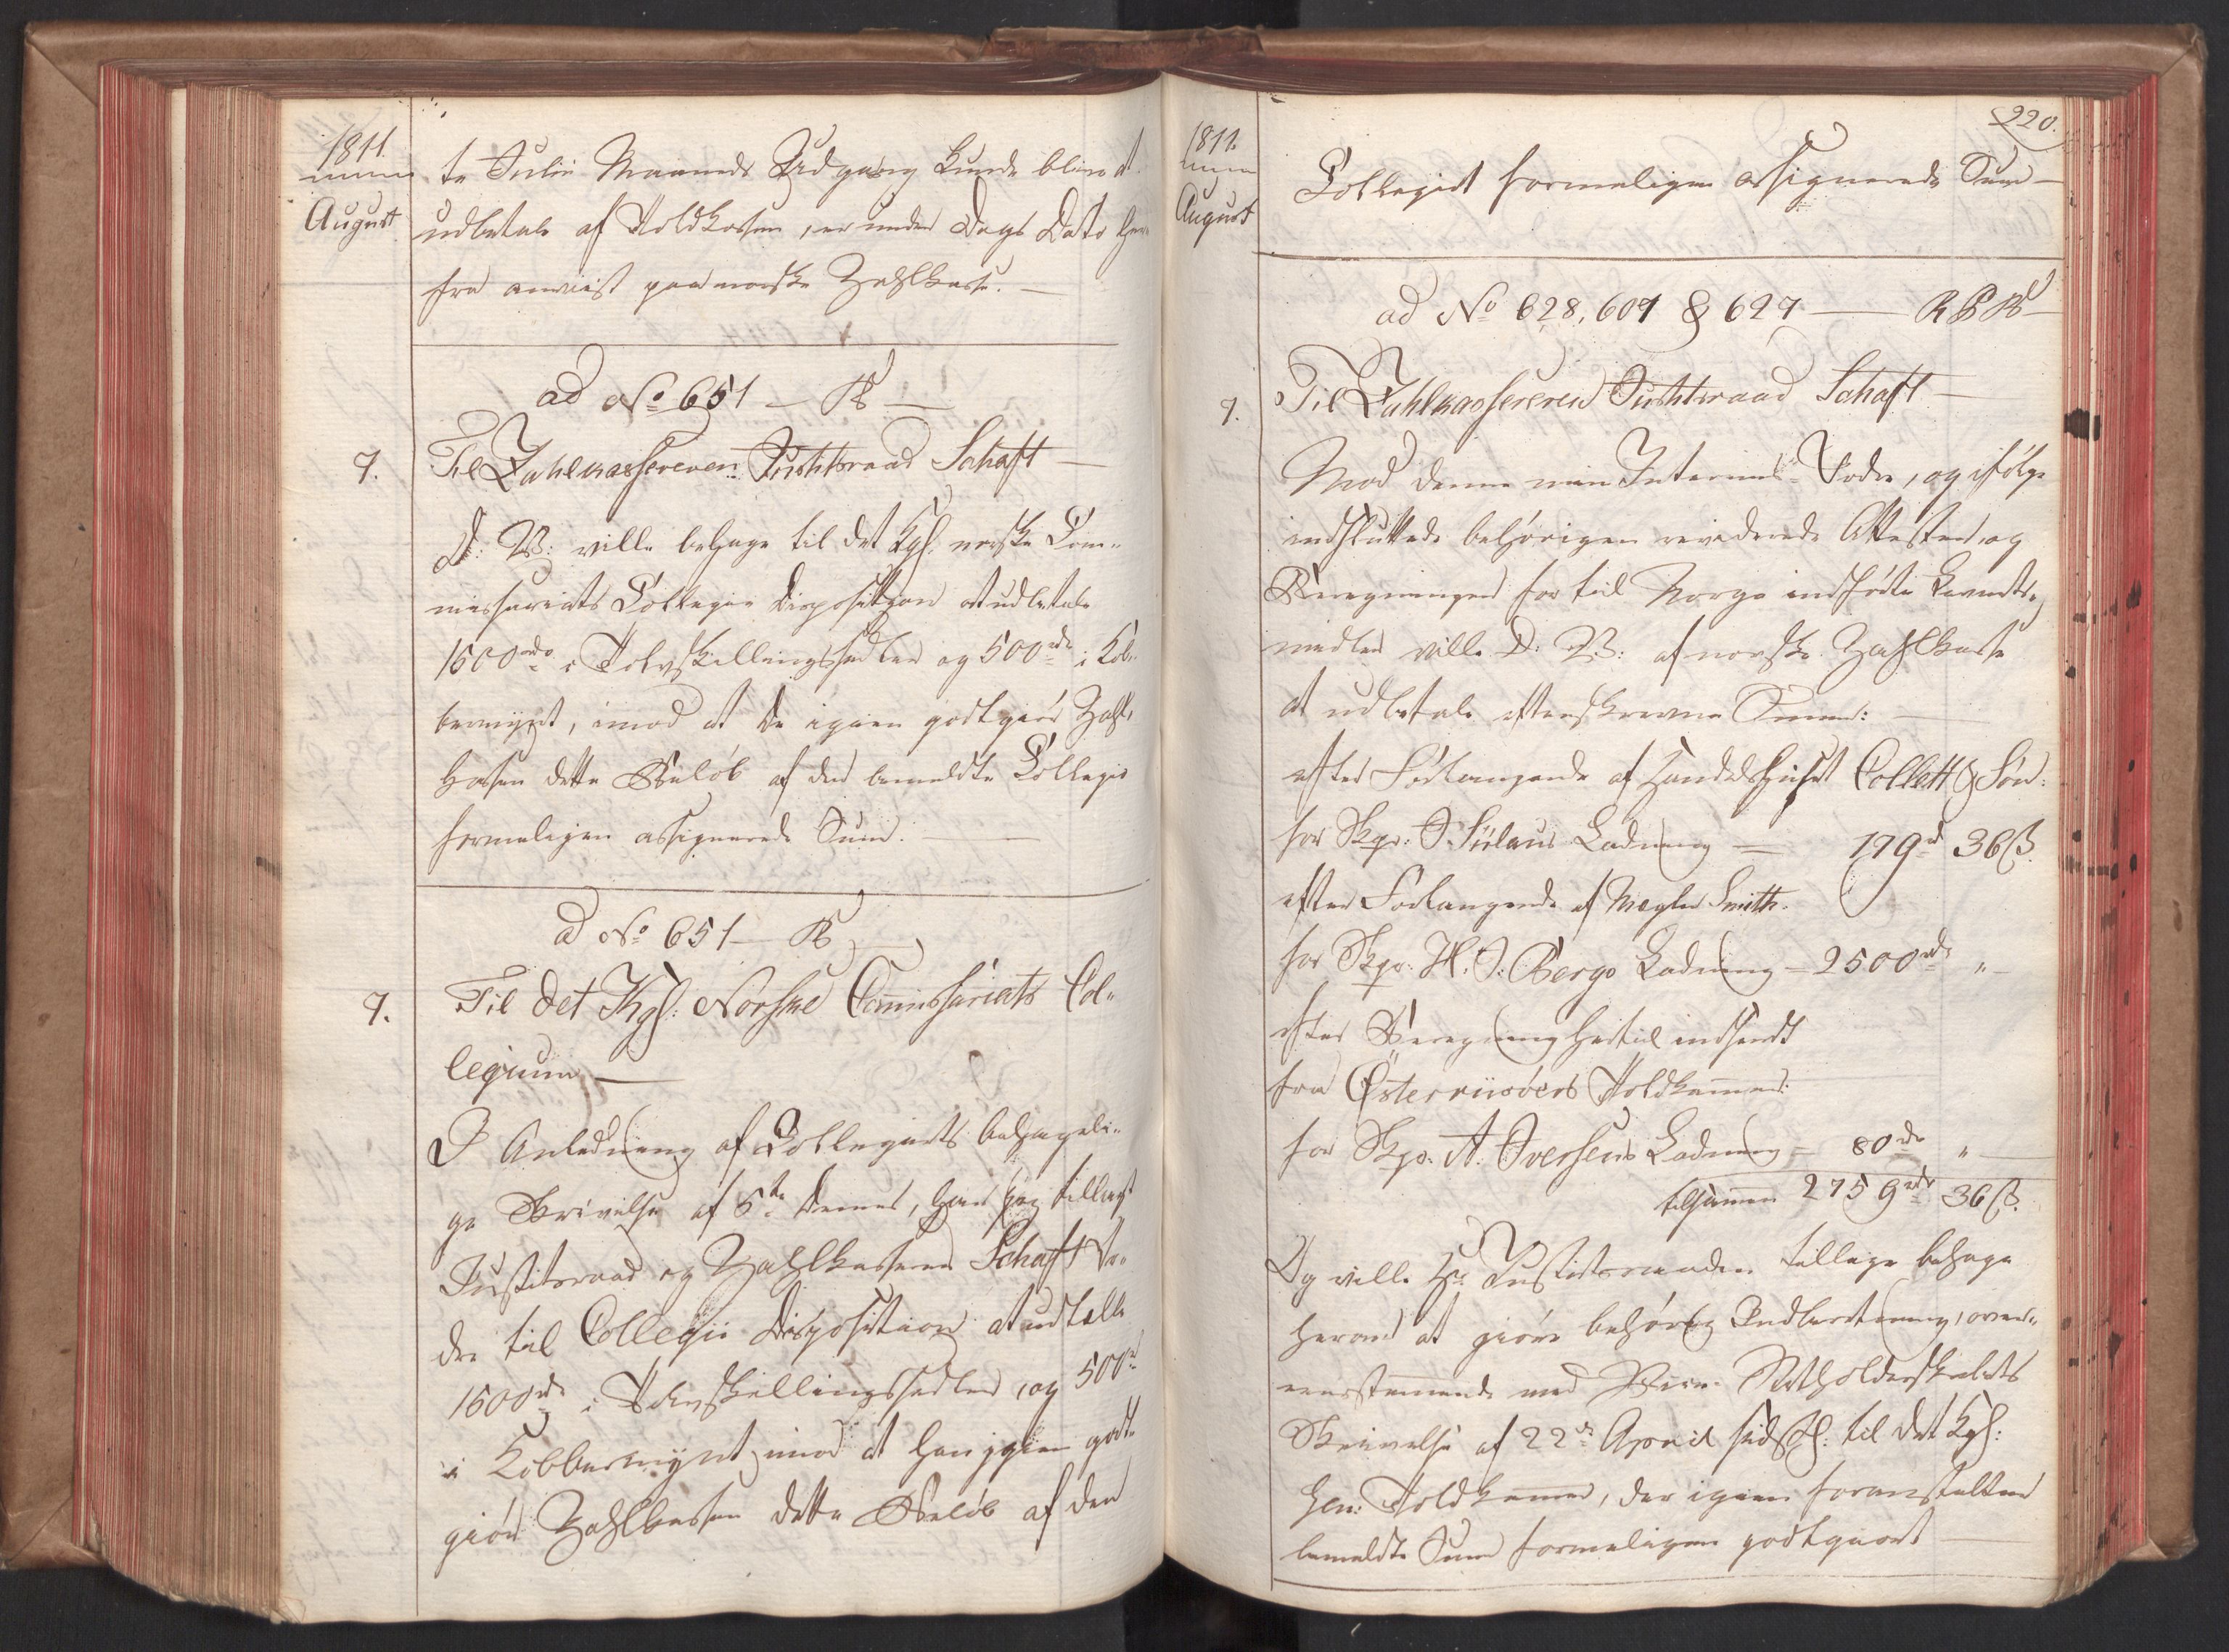 1811.
August
te Julii Maaneds Udgang kunde blive at
udbetale af Toldkassen, er under Dags Dato her
fra anviist paa norske Zahlkasse. —
ad No 651 — B —
7.
Til Zahlkassereren Justitsraad Schaft —
D: V: ville behage til det Kgl. norske Com-
missariats Collegie Disposition at udbetale
1600 rdr i Tolvskillingssedler og 500 rdr i Kob-
bermynt, imod at De igien godtgiør Zahl-
kassen dette Beløb af den bemeldte Collegie
formeligen assignerede Sum. —
ad No 651 — B
7.
Til det Kgl: Norske Commissariats Col-
legium —
I Anledning af Collegiets behageli-
ge Skrivelse af 5te dennes, har jeg tillagt
Justitsraad og Zahlkasserer Schaft Or-
dre til Collegii Disposition at udtælle
1600 rdr i Tolvskillingssedler, og 500 rd
i Kobbermynt, imod at han igien godt-
giør Zahlkassen dette Beløb af den
220.
1811.
August
Collegiet formeligen assignerede Sum —
ad No 628, 609 & 627 — R B B —
7.
Til Zahlkassereren Justitsraad Schaft —
Mod denne min Interims-Ordre, og ifølge
indsluttede behørigen reviderede Attester, og
Beregninger for til Norge indførte Levnets-
midler ville D: V: af norske Zahlkasse
at udbetale efterskrevne Summer: —
efter Forlangende af Handelshuset Collett & Søn:
for Skpr: Ladning — 179 rd 36 ß.
efter Forlangende af Mægler Smith.
for Skpr: H. J. Bergs Ladning — 2500 rdr „ —
efter Beregning hertil indsendt
fra Østerriisøers Toldkammer:
for Skpr. A. Iversens Ladning — 80 rdr „ —
tilsammen 2759 rdr 36 ß.
Og ville Hr Justitsraaden tillige behage
herom at giøre behørig Indberetning, over-
eensstemmende med Vice-Statholderskabets
Skrivelse af 22de April sidstl: til det Kgl:
Gen: Toldkammer, der igien foranstalter
bemeldte Sum formeligen godtgiort —